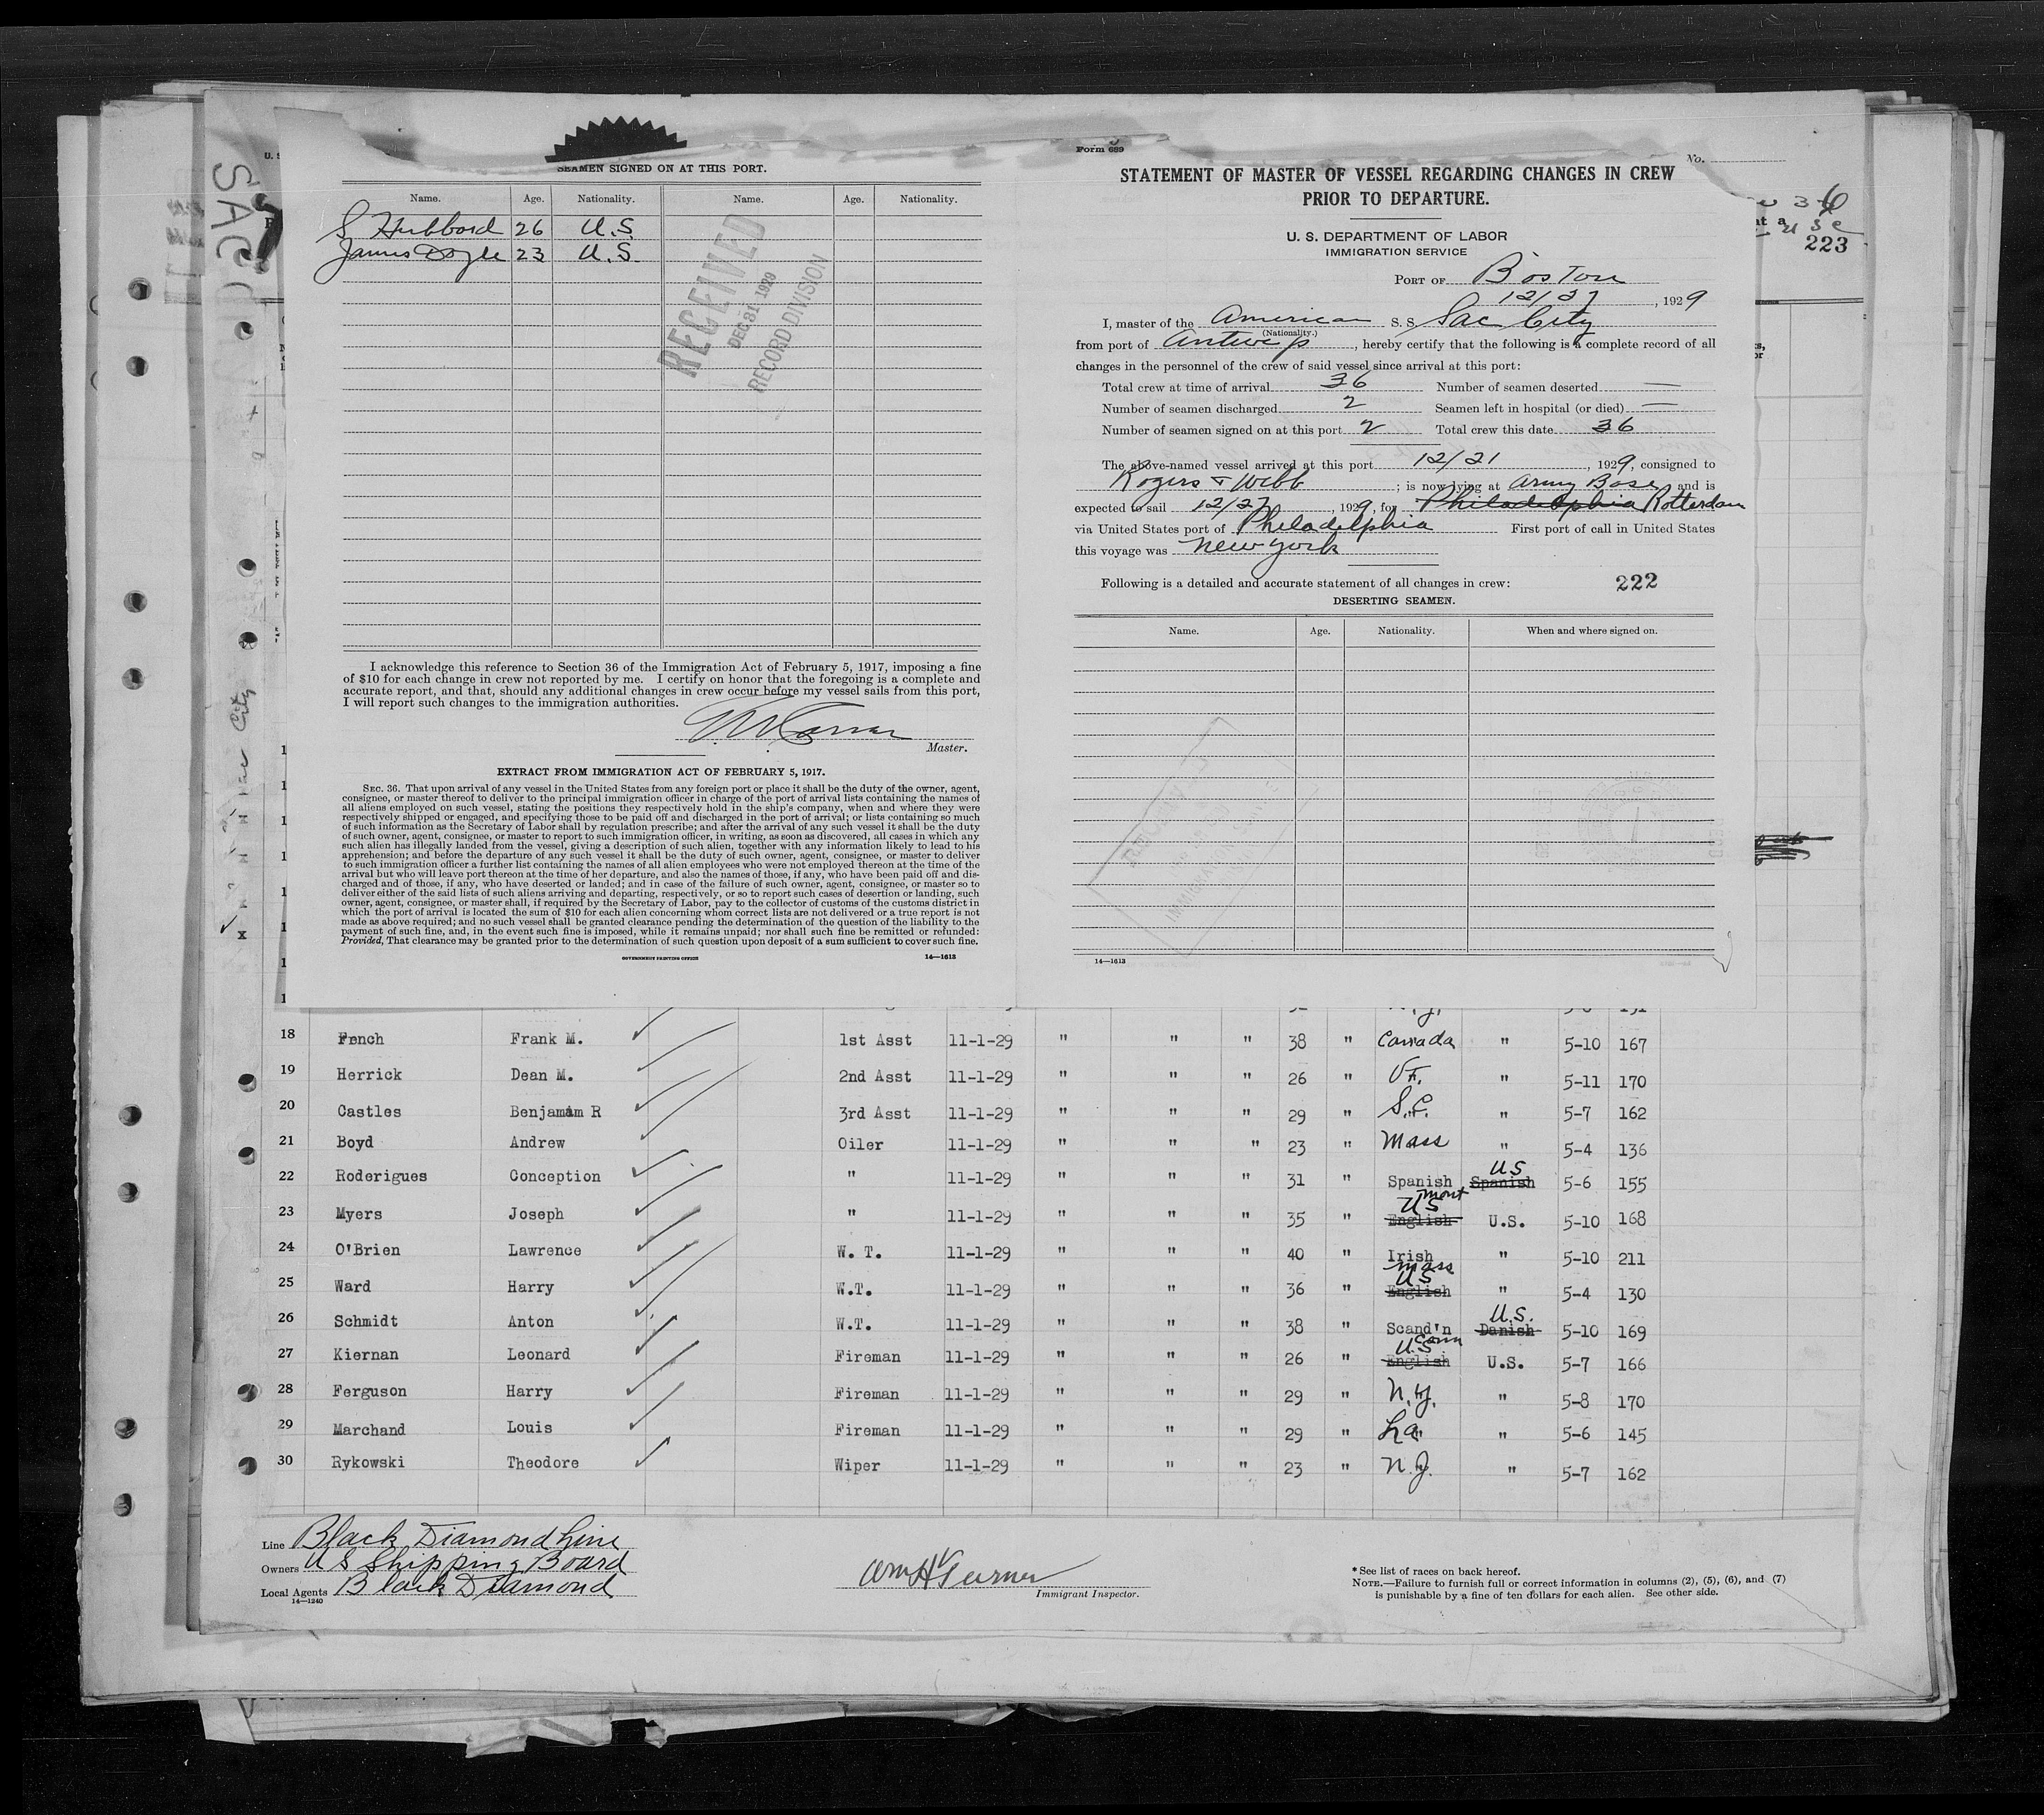 SEAMEN SIGNED ON AT THIS PORT.
Name. Age. Nationality. Name. Age. Nationality.
S Hubbard 26 U.S.
James Doyle 23 U.S.
RECEIVED
DEC 31 1929
RECORD DIVISION
I acknowledge this reference to Section 36 of the Immigration Act of February 5, 1917, imposing a fine
of $10 for each change in crew not reported by me. I certify on honor that the foregoing is a complete and
accurate report, and that, should any additional changes in crew occur before my vessel sails from this port,
I will report such changes to the immigration authorities.
Master.
EXTRACT FROM IMMIGRATION ACT OF FEBRUARY 5, 1917.
SEC. 36. That upon arrival of any vessel in the United States from any foreign port or place it shall be the duty of the owner, agent,
consignee, or master thereof to deliver to the principal immigration officer in charge of the port of arrival lists containing the names of
all aliens employed on such vessel, stating the positions they respectively hold in the ship's company, when and where they were
respectively shipped or engaged, and specifying those to be paid off and discharged in the port of arrival; or lists containing so much
of such information as the Secretary of Labor shall by regulation prescribe; and after the arrival of any such vessel it shall be the duty
of such owner, agent, consignee, or master to report to such immigration officer, in writing, as soon as discovered, all cases in which any
such alien has illegally landed from the vessel, giving a description of such alien, together with any information likely to lead to his
apprehension; and before the departure of any such vessel it shall be the duty of such owner, agent, consignee, or master to deliver
to such immigration officer a further list containing the names of all alien employees who were not employed thereon at the time of the
arrival but who will leave port thereon at the time of her departure, and also the names of those, if any, who have been paid off and dis-
charged and of those, if any, who have deserted or landed; and in case of the failure of such owner, agent, consignee, or master so to
deliver either of the said lists of such aliens arriving and departing, respectively, or so to report such cases of desertion or landing, such
owner, agent, consignee, or master shall, if required by the Secretary of Labor, pay to the collector of customs of the customs district in
which the port of arrival is located the sum of $10 for each alien concerning whom correct lists are not delivered or a true report is not
made as above required; and no such vessel shall be granted clearance pending the determination of the question of the liability to the
payment of such fine, and, in the event such fine is imposed, while it remains unpaid; nor shall such fine be remitted or refunded:
Provided, That clearance may be granted prior to the determination of such question upon deposit of a sum sufficient to cover such fine.
GOVERNMENT PRINTING OFFICE 14—1613
Form 689
No.
STATEMENT OF MASTER OF VESSEL REGARDING CHANGES IN CREW
PRIOR TO DEPARTURE.
U. S. DEPARTMENT OF LABOR
IMMIGRATION SERVICE
PORT OF Boston
12/27, 1929
I, master of the American S. S. Sac City
(Nationality.)
from port of Antwerp, hereby certify that the following is a complete record of all
changes in the personnel of the crew of said vessel since arrival at this port:
Total crew at time of arrival 36 Number of seamen deserted —
Number of seamen discharged 2 Seamen left in hospital (or died) —
Number of seamen signed on at this port 2 Total crew this date 36
The above-named vessel arrived at this port 12/21, 1929, consigned to
Rogers & Webb; is now lying at Army Base, and is
expected to sail 12/27, 1929, for Philadelphia Rotterdam
via United States port of Philadelphia First port of call in United States
this voyage was New York
Following is a detailed and accurate statement of all changes in crew: 222
DESERTING SEAMEN.
Name. Age. Nationality. When and where signed on.
14—1613
223
18 French Frank M. 1st Asst 11-1-29 " " " 38 " Canada " 5-10 167
19 Herrick Dean M. 2nd Asst 11-1-29 " " " 26 " Vt. " 5-11 170
20 Castles Benjamin R 3rd Asst 11-1-29 " " " 29 " S.C. " 5-7 162
21 Boyd Andrew Oiler 11-1-29 " " " 23 " Mass " 5-4 136
22 Roderigues Conception " 11-1-29 " " " 31 " Spanish Spanish US 5-6 155
23 Myers Joseph " 11-1-29 " " " 35 " English US Mont U.S. 5-10 168
24 O'Brien Lawrence W. T. 11-1-29 " " " 40 " Irish " 5-10 211
25 Ward Harry W.T. 11-1-29 " " " 36 " English US Mass " 5-4 130
26 Schmidt Anton W.T. 11-1-29 " " " 38 " Scand'n Danish U.S. 5-10 169
27 Kiernan Leonard Fireman 11-1-29 " " " 26 " English U.S Conn U.S. 5-7 166
28 Ferguson Harry Fireman 11-1-29 " " " 29 " N.Y. " 5-8 170
29 Marchand Louis Fireman 11-1-29 " " " 29 " La " 5-6 145
30 Rykowski Theodore Wiper 11-1-29 " " " 23 " N.J. " 5-7 162
Line Black Diamond Line
Owners U S Shipping Board
Local Agents Black Diamond
14—1240
Wm H Turner
Immigrant Inspector.
* See list of races on back hereof.
NOTE.—Failure to furnish full or correct information in columns (2), (5), (6), and (7)
is punishable by a fine of ten dollars for each alien. See other side.